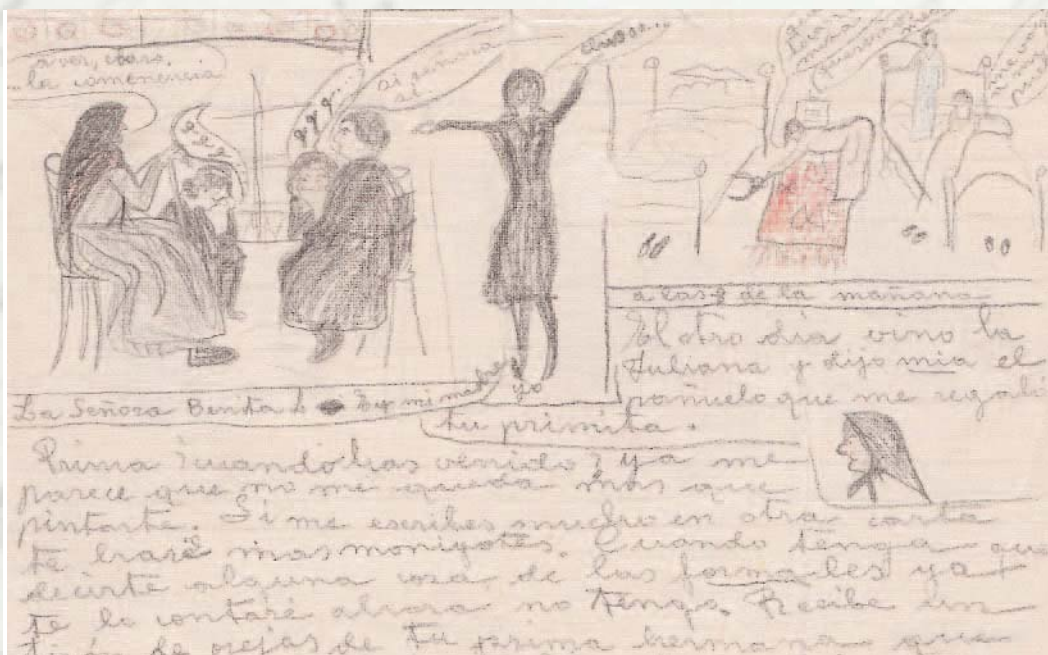 a ver, claro,
...la comenencia
q q q...
q q q...
si señora
si...
chisss...
a las 8 de la mañana
La Señora Benita L y mi madre yo
El otro dia vino la
Juliana y dijo mia el
pañuelo que me regaló
tu primita.
Prima ¿cuando has venido? ya me
parece que no me queda mas que
pintarte. Si me escribes mucho en otra carta
te haré mas monigotes. Cuando tenga que
decirte alguna cosa de las formales ya
te lo contaré ahora no tengo. Recibe un
tirón de orejas de tu prima hermana que